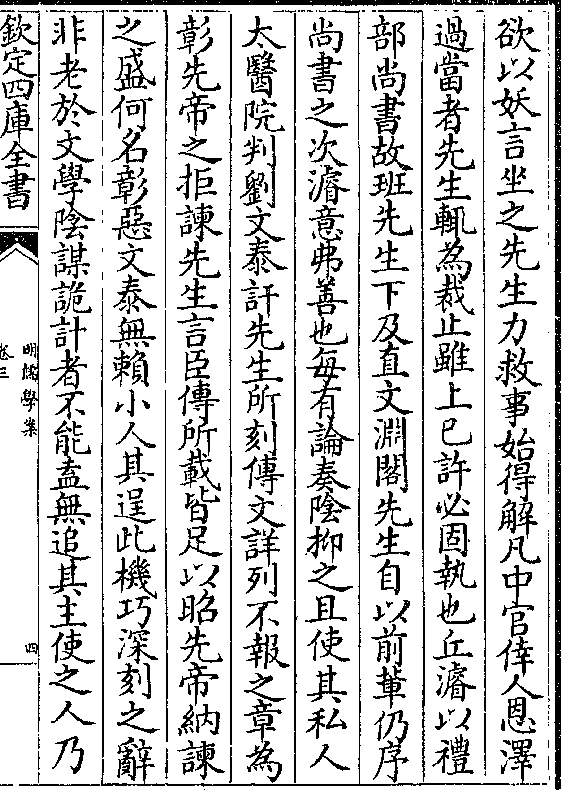 欲以妖言坐之先生力救事始得解凡中官倖人恩澤
過當者先生輒為裁止雖上已許必固執也丘濬以禮
部尚書故班先生下及直文淵閣先生自以前輩仍序
尚書之次濬意弗善也每有論奏陰抑之且使其私人
太醫院判劉文泰訐先生所刻傳文詳列不報之章為
彰先帝之拒諫先生言臣傳所載皆足以昭先帝納諫
之盛何名彰惡文泰無賴小人其逞此機巧深刻之辭
非老於文學陰謀詭計者不能盍無追其主使之人乃
欽定四庫全書
明儒學案
卷三
四